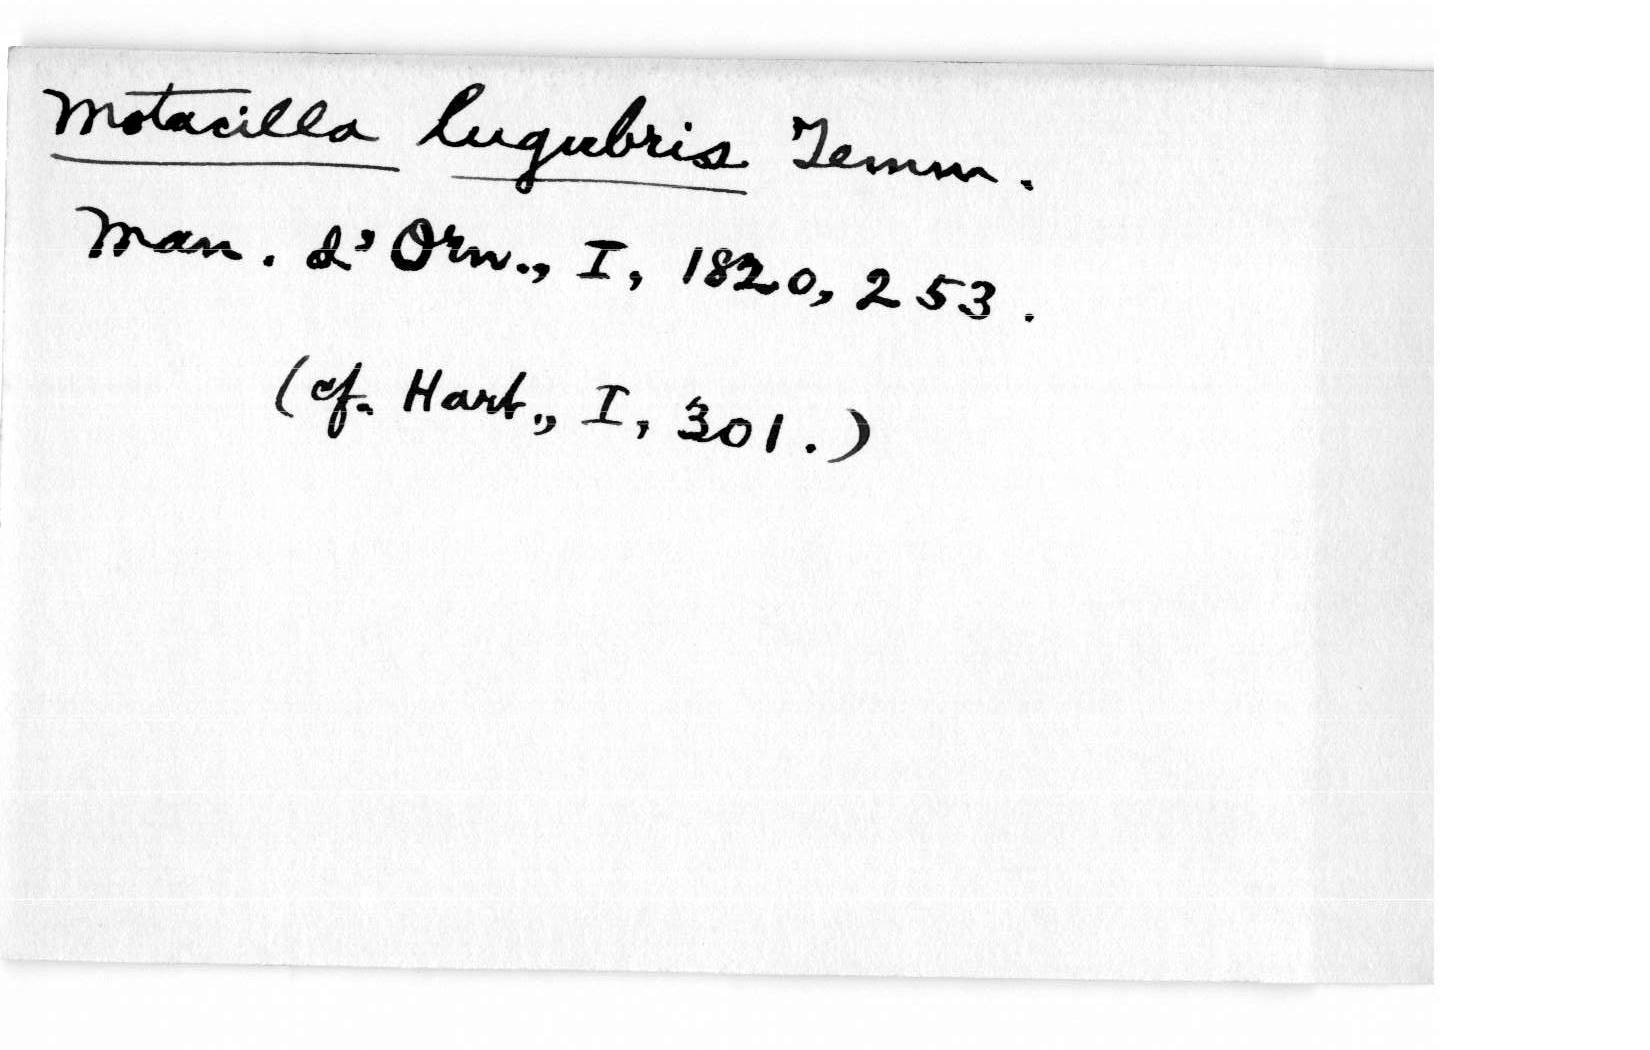 Motacilla lugubris Temm.
Man. d'Orn., I, 1820, 253.
(cf. Hart., I, 301.)